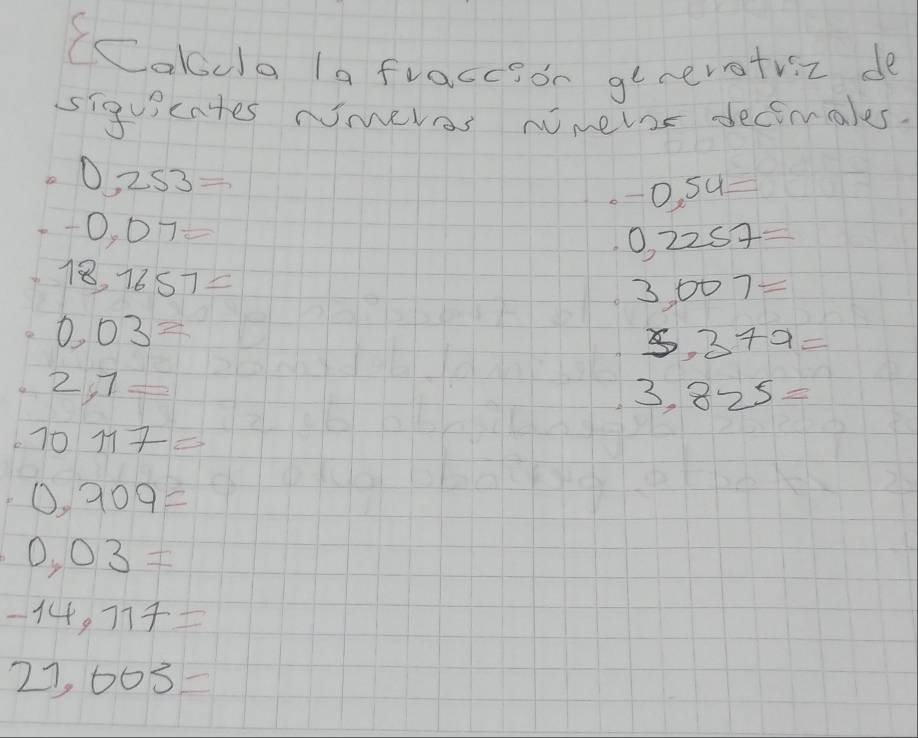 Calcula la fracción generatriz de
siguientes números números decimales.
. 0,253=
. -0,01=
. 18,1651=
. 0,03=
. 2,1=
. 10 117=
. 0,909=
. 0,03=
-14,117=
21,003=
. -0,54=
. 0,2257=
. 3,001=
. 5,379=
. 3,825=